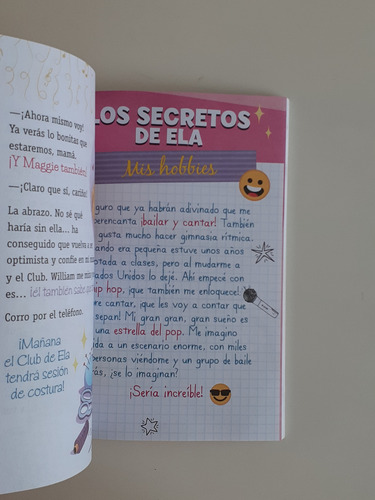 —¡Ahora mismo voy!
Ya verás lo bonitas que
estaremos, mamá.
¡Y Maggie también!
—¡Claro que sí, cariño!
La abrazo. No sé qué
haría sin ella... ha
conseguido que vuelva a
optimista y confíe en
y el Club. William me
es... ¡él también sabe
Corro por el teléfono.
¡Mañana
el Club de Ela
tendrá sesión
de costura!
LOS SECRETOS
DE ELA
Mis hobbies
guro que ya habrán adivinado que me
erencanta ¡bailar y cantar! También
gusta mucho hacer gimnasia rítmica.
ando era pequeña estuve unos años
tada a clases, pero al mudarme a
tados Unidos lo dejé. Ahí empecé con
hip hop, ¡que también me enloquece!
re cantar, ¡qué les voy a contar que
sepan! Mi gran, gran, gran sueño es
una estrella del pop. Me imagino
ida a un escenario enorme, con miles
personas viéndome y un grupo de baile
rás, ¿se lo imaginan?
¡Sería increíble!